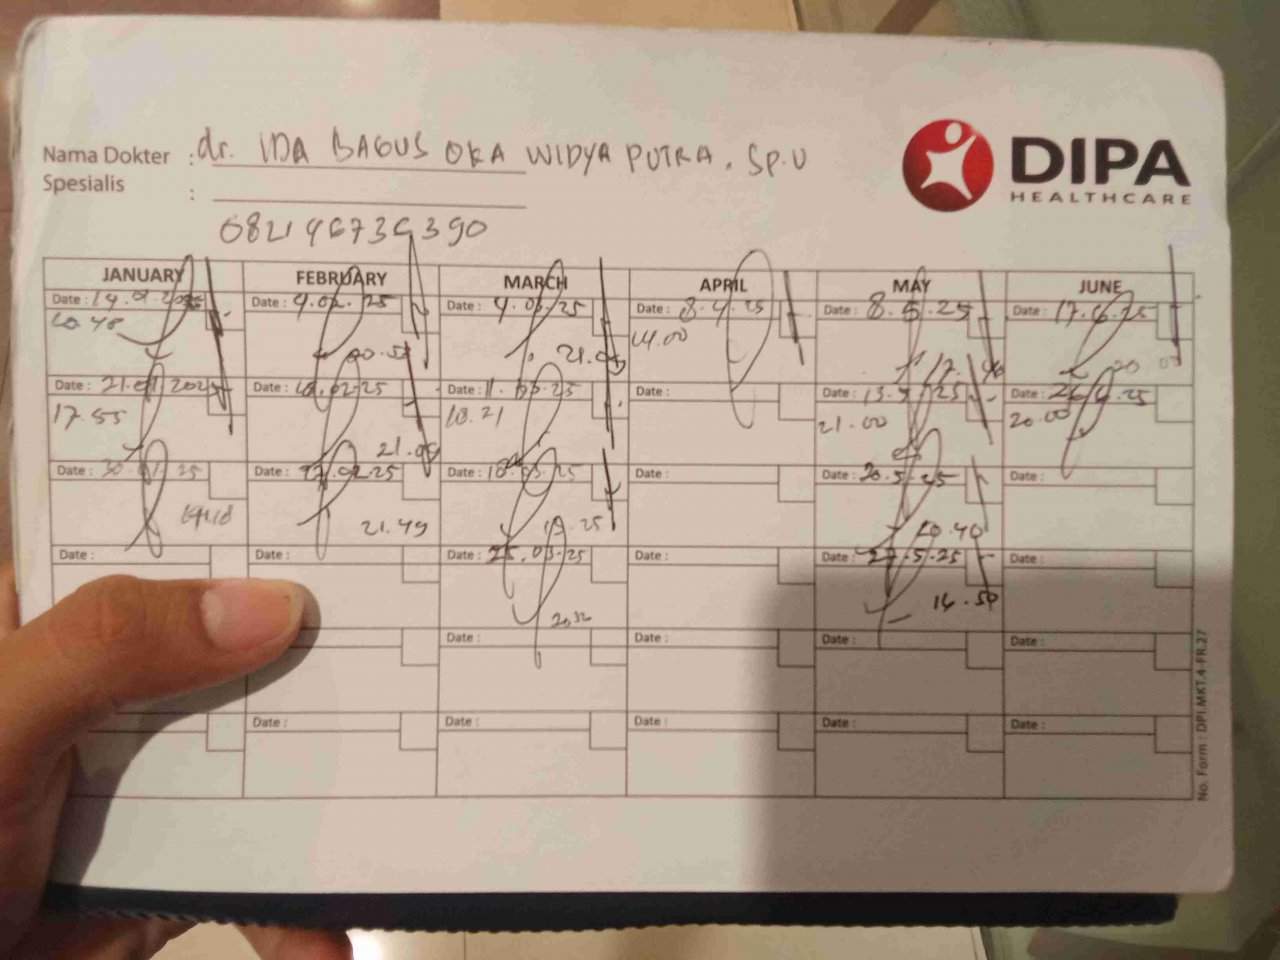 DIPA
HEALTHCARE
Nama Dokter : dr. IDA BAGUS OKA WIDYA PUTRA. SP.U
Spesialis :
JANUARY FEBRUARY MARCH APRIL MAY JUNE
Date : Date : 4.02.25 Date : 4.03.25 Date : 8.4.25 Date : 8.5.25 Date : 17.6.25
14.00
Date : 21.01.2025 Date : Date : 11.03.25 Date : Date : 13.5.25 Date :
17.55 18.21 21.00 20.00
Date : 30.01.25 Date : 27.02.25 Date : 18.03.25 Date : Date : 20.5.25 Date :
21.49 19.25
Date : Date : Date : 25.03.25 Date : Date : 27.5.25 Date :
20.32
Date : Date : Date : Date :
Date : Date : Date : Date : Date :
No. Form : DPI.MKT.4-FR.27